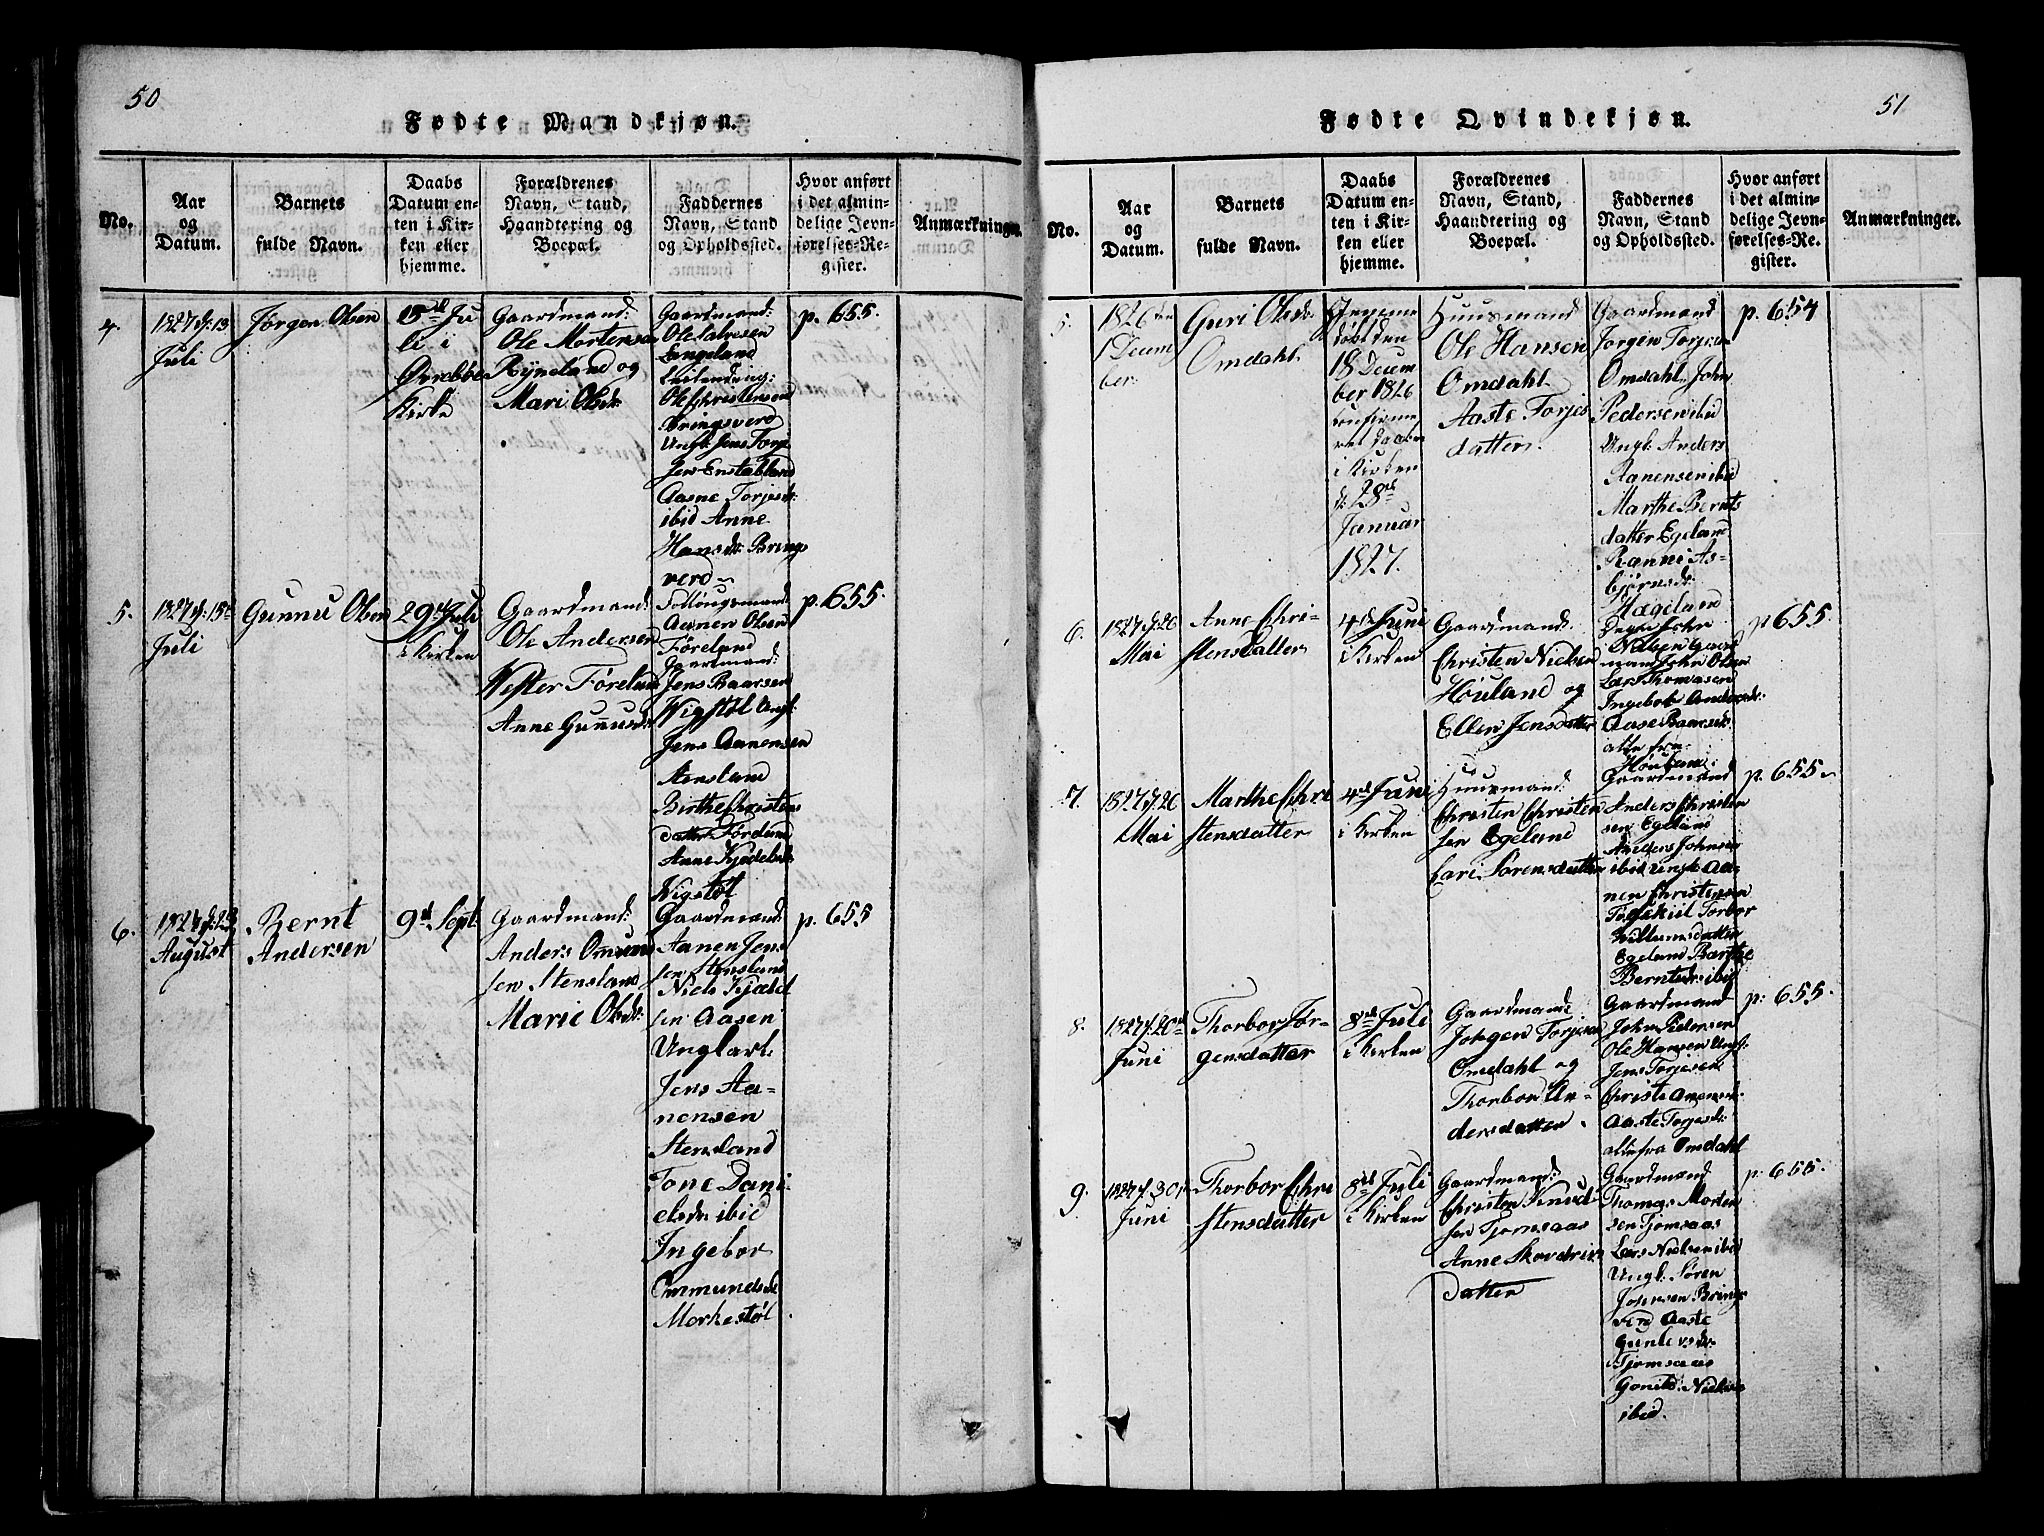 50
Fødte Mandkjøn.
No.
Aar
og
Datum.
Barnets
fulde Navn.
Daabs
Datum en-
ten i Kir-
ken eller
hjemme.
Forældrenes
Navn, Stand,
Haandtering og
Boepæl.
Faddernes
Navn, Stand
og Opholdssted.
Hvor anført
i det almin-
delige Jevn-
førelses-Re-
gister.
Anmærkninger.
4.
1827 d: 13
Juli
Jørgen Olsen
15de Ju
li i
Øvrebøe
Kirke
Gaardmand:
Ole Mortensen
Ryneland og
Mari Olsdr
Gaardmand:
Ole Salvesen
Langeland
Ole Christensen
Bringsverd
Ungk: Jens Torje
sen Enstabland
Aasne Torjesdr:
ibid Anne
Hansdr Brings
verd
p. 655.
5.
1827 d: 15de
Juli
Gunnu Olsen
29de Juli
i Kirken
Gaardmand:
Ole Andersen
Vester Føreland
Anne Gunnusdr:
Aanen Olsen
Føreland
Gaardmand:
Jens Baarsen
Wigstøl Ungk:
Jens Aanensen
Stensland
Birthe Christens
datter Føreland
Anne
Vigstøl
p. 655.
6.
1827 d: 23
August
Bernt
Andersen
9de Sept.
Gaardmand:
Anders Omund
sen Stensland
Marie Olsdr:
Gaardmand:
Aanen Jens
sen Stensland
Niels Kjæld
sen Aasen
Ungkarl
Jens Aa-
nensen
Stensland
Tone Dani
elsdr ibid
Ingebor
Ommundsdr
Morkestøl
p. 655
51
Fødte Qvindekjøn.
No.
Aar
og
Datum.
Barnets
fulde Navn.
Daabs
Datum en-
ten i Kir-
ken eller
hjemme.
Forældrenes
Navn, Stand,
Haandtering og
Boepæl.
Faddernes
Navn, Stand
og Opholdssted.
Hvor anført
i det almin-
delige Jevn-
førelses-Re-
gister.
Anmærkninger.
5.
1826 den
1 Decem
ber.
Guri Olsdr
Omdahl.
Hjemme
døbt den
18 Decem
ber 1826
confirme
ret Daaben
i Kirken
d: 28de
Januar
1827.
Huusmand
Ole Hansen
Omdahl
Aaste Torjes
datter.
Gaardmand
Jorgen Torjesen
Omdahl, John
Pedersen ibid
Ungk: Anders
Aanensen ibid
Marthe Bernts
datter Egeland
Ranni As-
bjørnsdr:
Hægeland
p. 654
6.
1827 d. 26
Mai
Anne Chri-
stensdatter
4de Juni
i Kirken
Gaardmand:
Christen Nielsen
Høuland og
Ellen Jensdatter
Degn John
Nielsen Gaard
mand John Olsen
Lars Thomasen
Ingebor Andersdr:
Aase Baarsdr:
alle fra
Høuland:
p 655.
7.
1827 d. 26
Mai
Marthe Chri
stensdatter
4de Juni
i Kirken
Huusmand:
Christen Christen
sen Egeland
Kari Sørensdatter
Gaardmand
Anders Christen
sen Egeland
Anders Johnsen
ibid Ungk Aa-
nen Christensen
Torbor
Willumsdatter
Egeland Barthe
Berntsdr: ibid
p. 655
8.
1827 d. 20de
Juni
Thorbor Jør-
gensdatter
8de Juli
i Kirken
Gaardmand:
Jørgen Torjesen
Omdahl og
Thorbor An-
dersdatter.
Gaardmand
John Pedersen
Ole Hansen Ungk:
Jens Torjesen
Christe Aanensdr.
Aaste Torjesdr:
alle fra Omdahl
p: 655.
9.
1827 d. 30te
Juni
Thorbor Chri
stensdatter
8de Juli
i Kirken
Gaardmand:
Christen Knud
sen Tjomsaas
Anne Skovdrirs
datter
Gaardmand
Thomas Morten
sen Tjomsaas
Lars Nielsen ibid
Ungk: Søren
Johnsen Brings
verd Aaste
Gunlersdr.
Tjomsaas
Nielsdr
ibid.
p. 655.